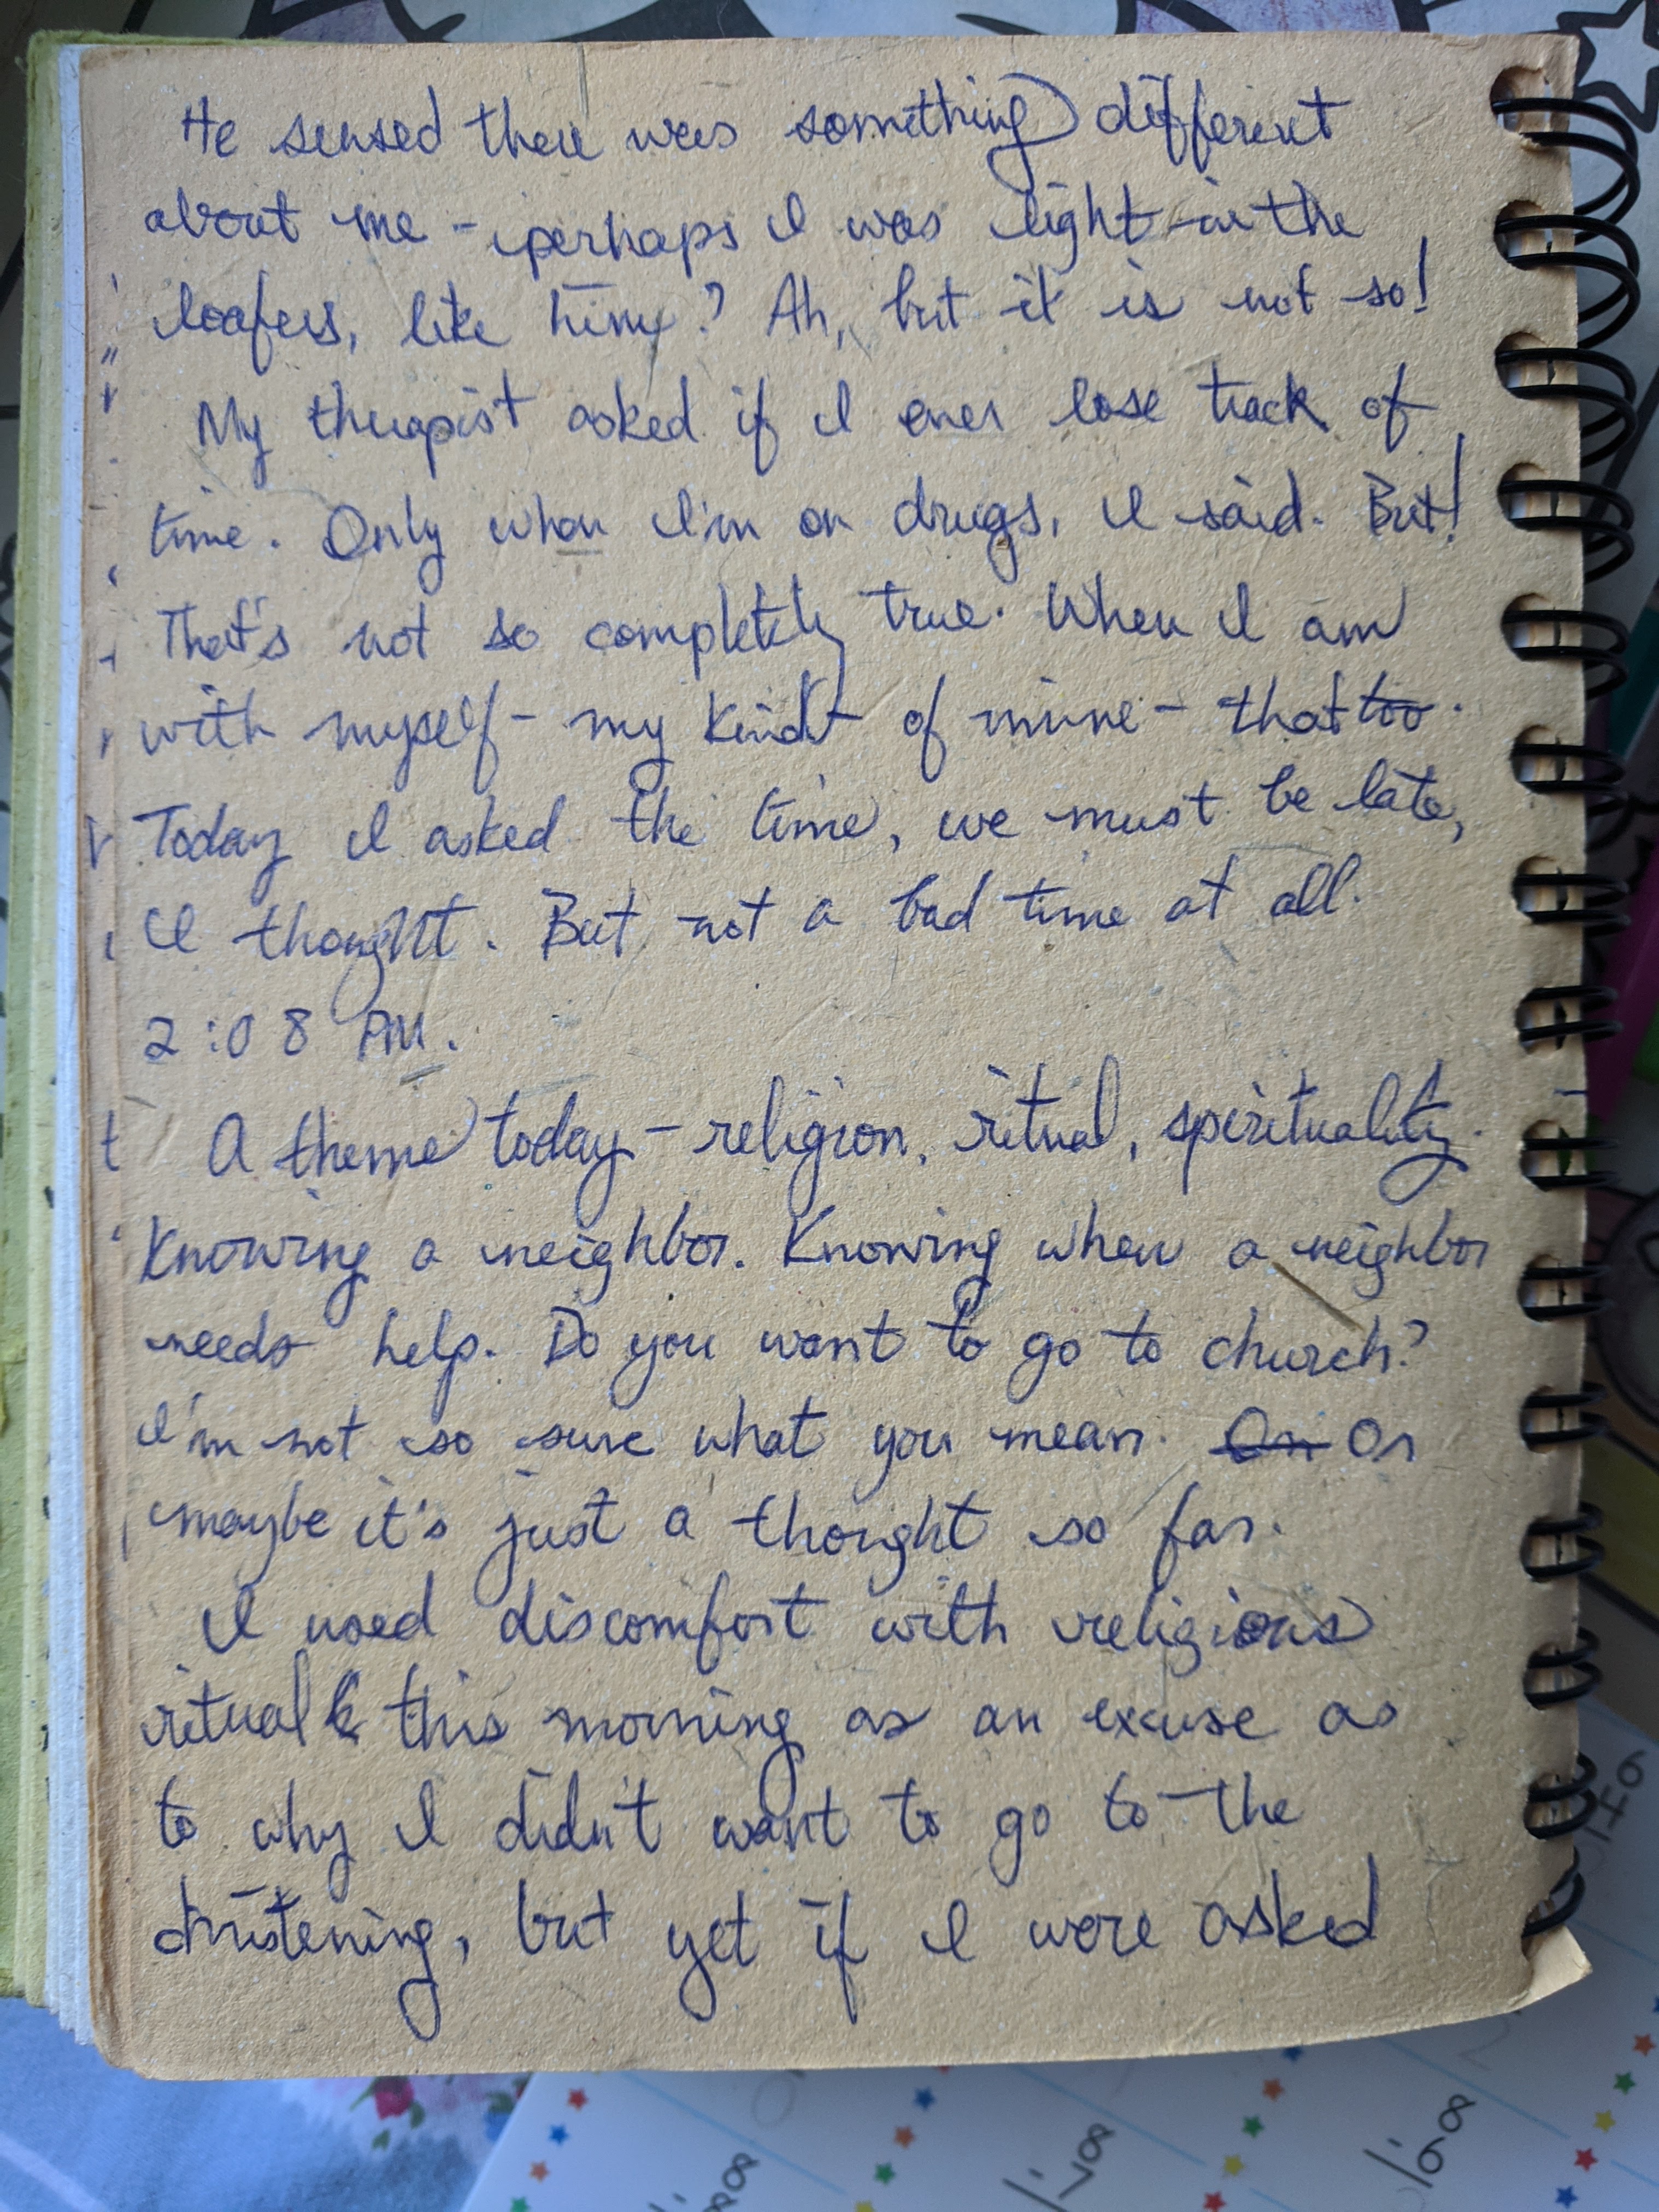 He sensed there was something different
about me - perhaps I was light in the
loafers, like him? Ah, but it is not so!
My therapist asked if I ever lose track of
time. Only when I'm on drugs, I said. But!
That's not so completely true. When I am
with myself - my kind of mine - that too.
Today I asked the time, we must be late,
I thought. But not a bad time at all.
2:08 PM.
A theme today - religion, ritual, spirituality.
Knowing a neighbor. Knowing when a neighbor
needs help. Do you want to go to church?
I'm not so sure what you mean. On Or
maybe it's just a thought so far.
I used discomfort with religious
ritual this morning as an excuse as
to why I didn't want to go to the
christening, but yet if I were asked